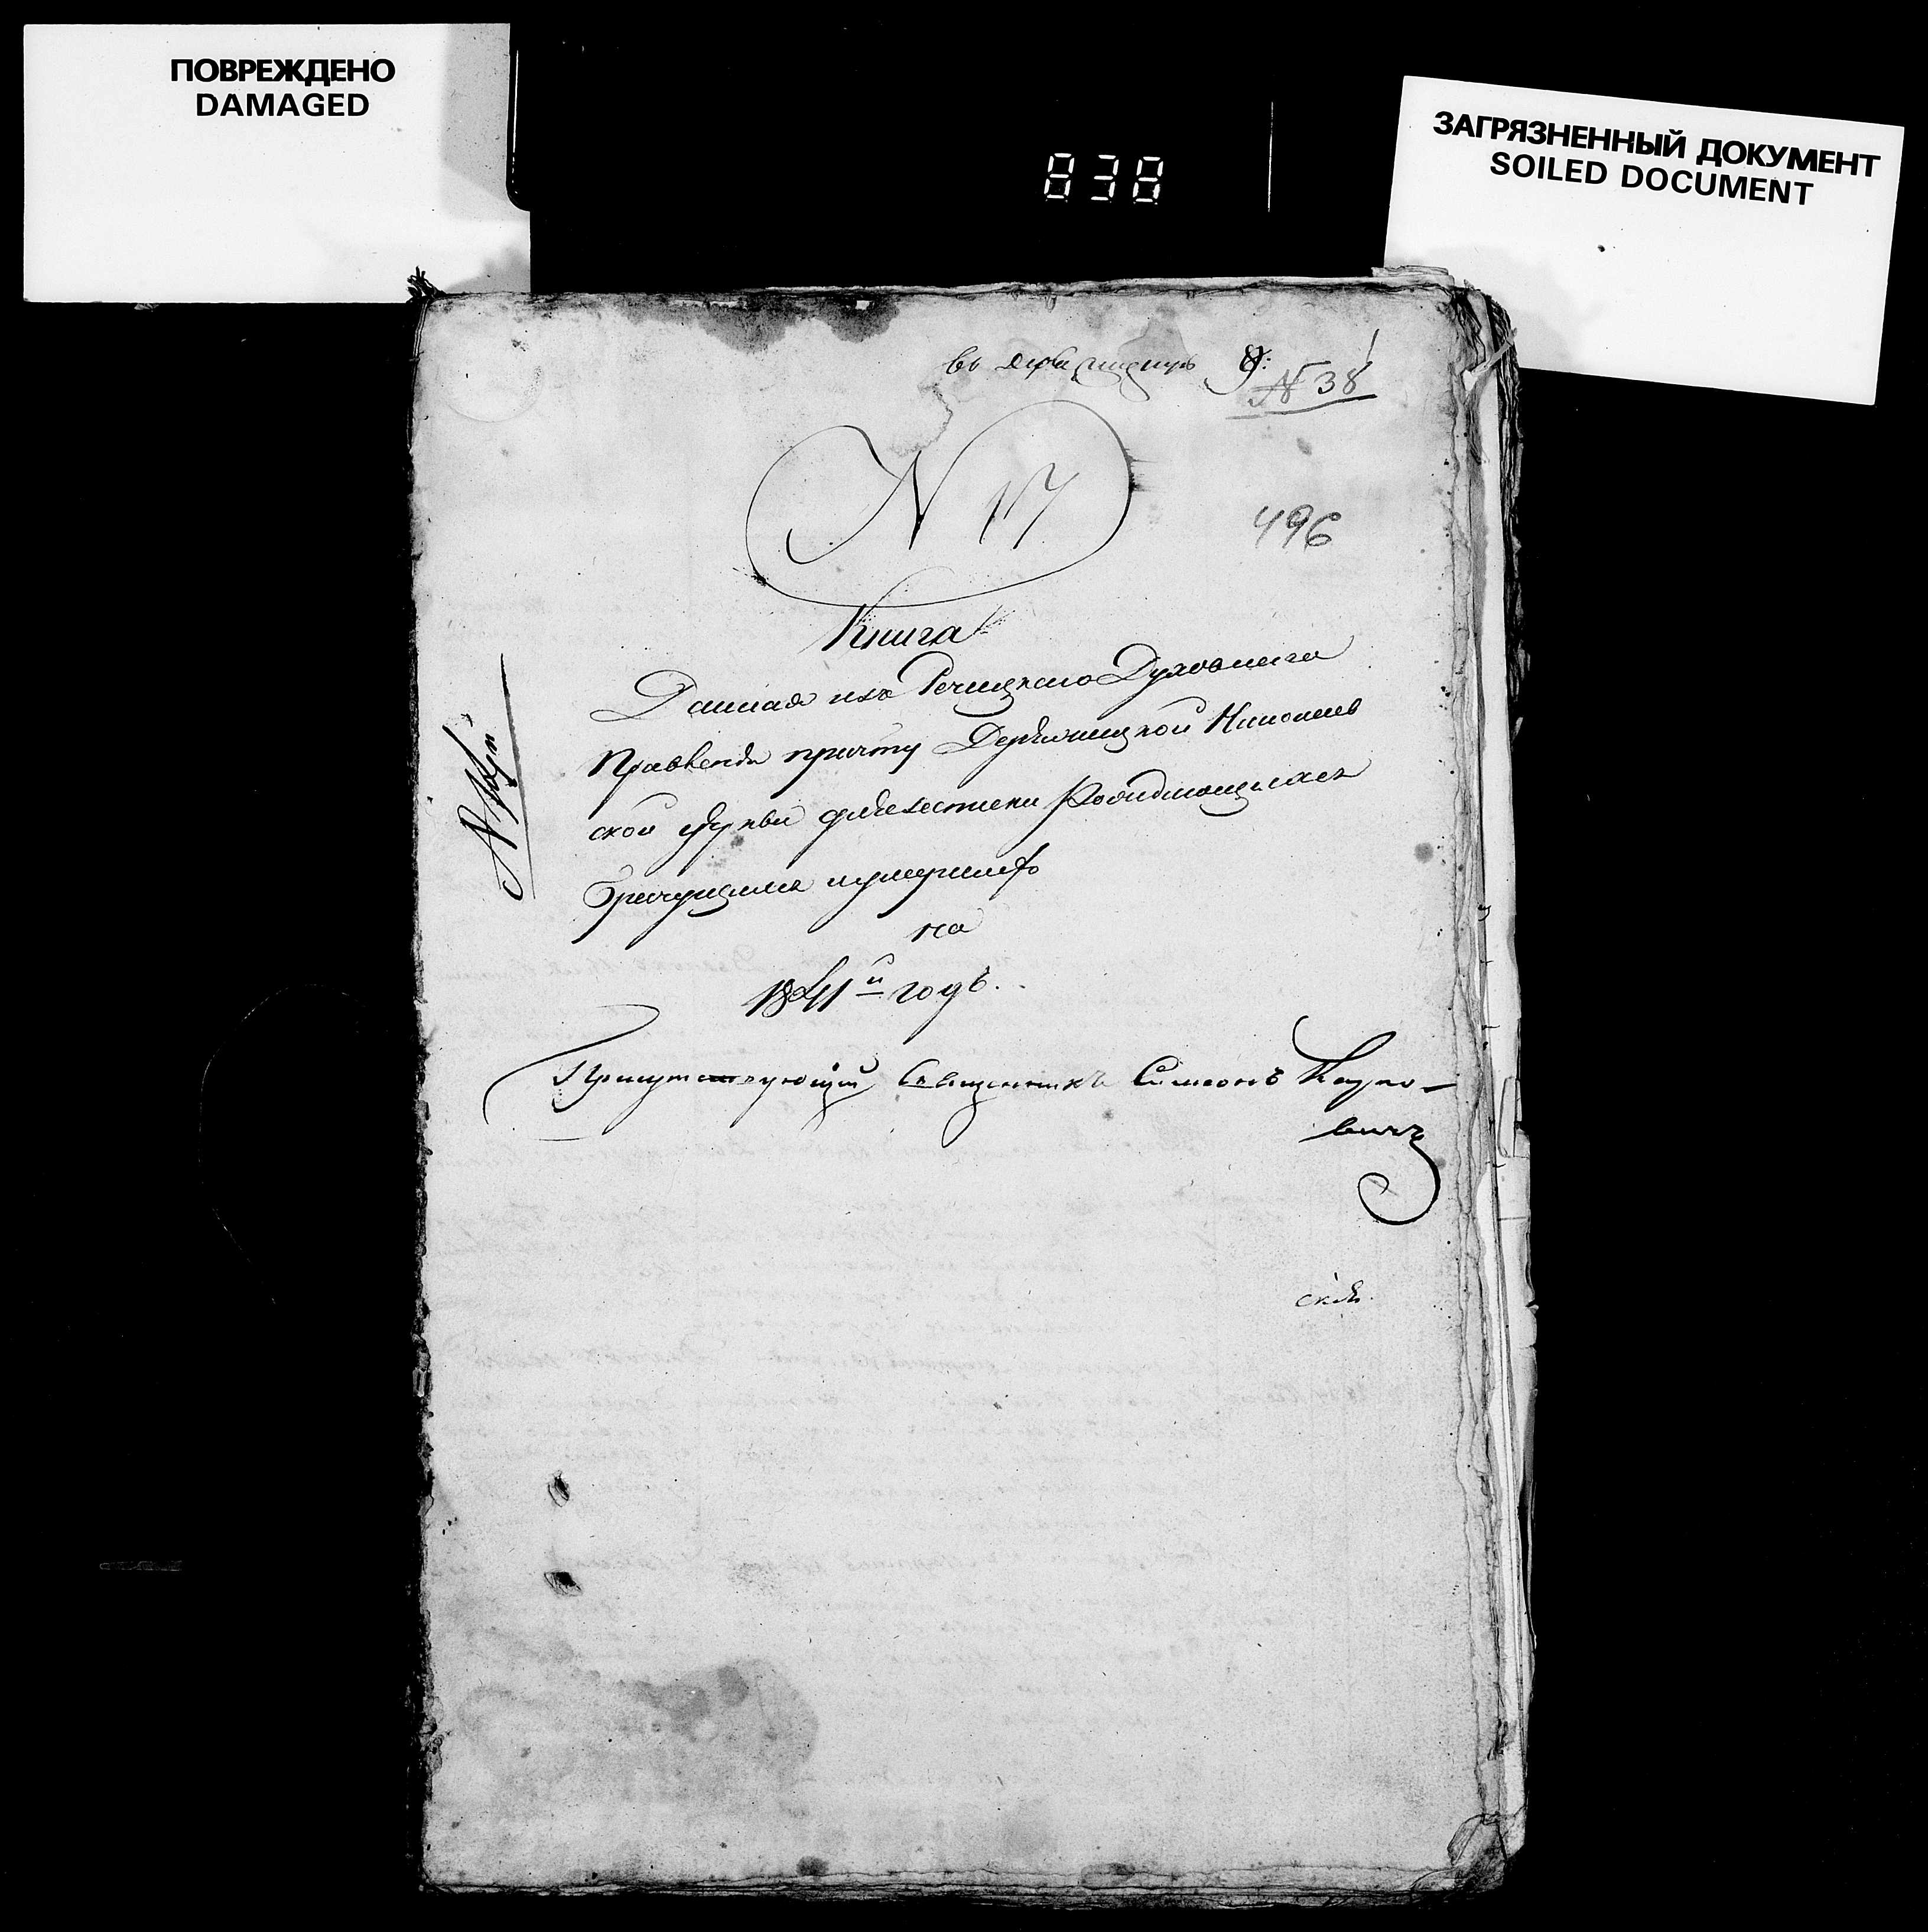 ПОВРЕЖДЕНО
DAMAGED
838
ЗАГРЯЗНЕННЫЙ ДОКУМЕНТ
SOILED DOCUMENT
въ
N 38
N 17
496
Книга
Данная изъ Речицкаго Духовнаго
Правленія причту Дерновицкой Николаев
ской церкви для записки Родившихся
Бречущихся иумершихъ
на
1841й годъ.
Присутствующій Священникъ Симеонъ Карпо-
вичъ